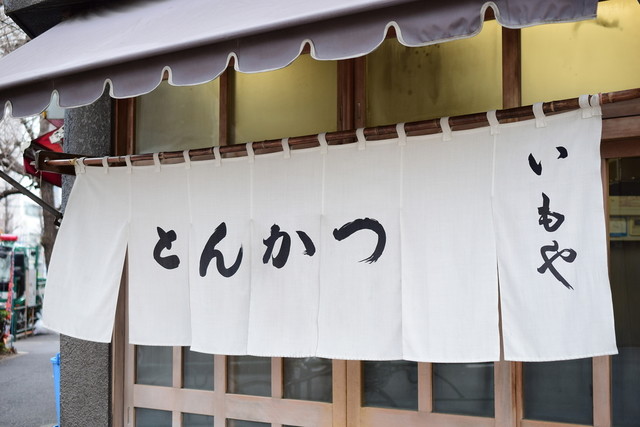 とんかつ
いもや